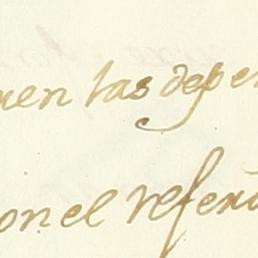 uen las depen
con el referi